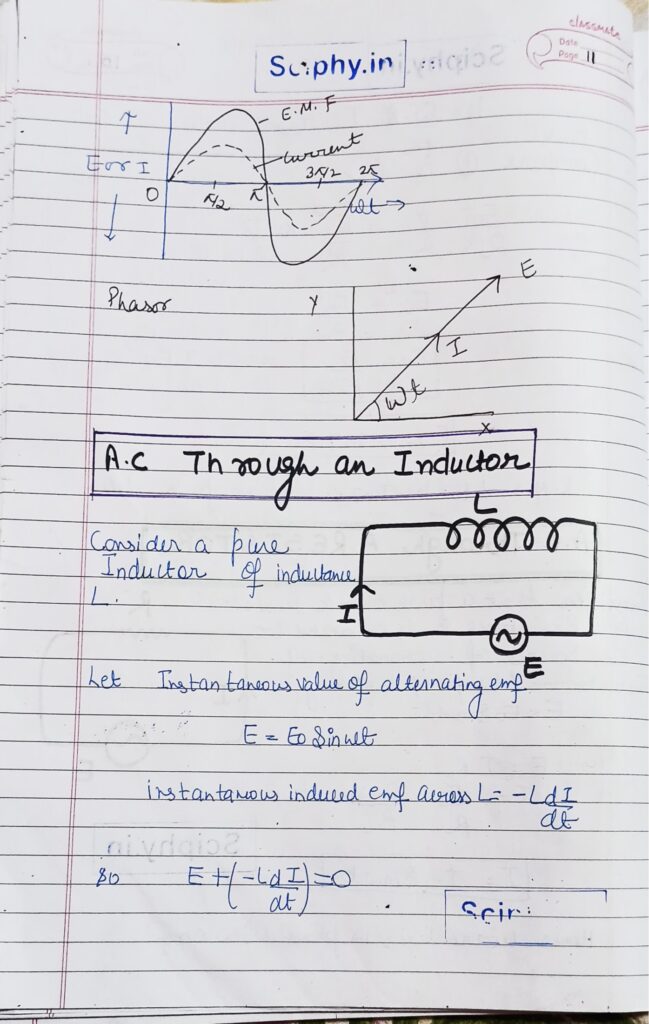 classmate
Date
Page 11
Sciphy.in
↑
E or I
↓
E.M.F
Current
0
π/2
π
3π/2
2π
ωt →
Phasor
Y
E
I
ωt
X
A.C Through an Inductor
L
Consider a pure
Inductor of inductance
L.
I
E
Let Instantaneous value of alternating emf
E = E0 Sinωt
instantanous induced emf across L = -L dI/dt
So E + (-L dI/dt) = 0